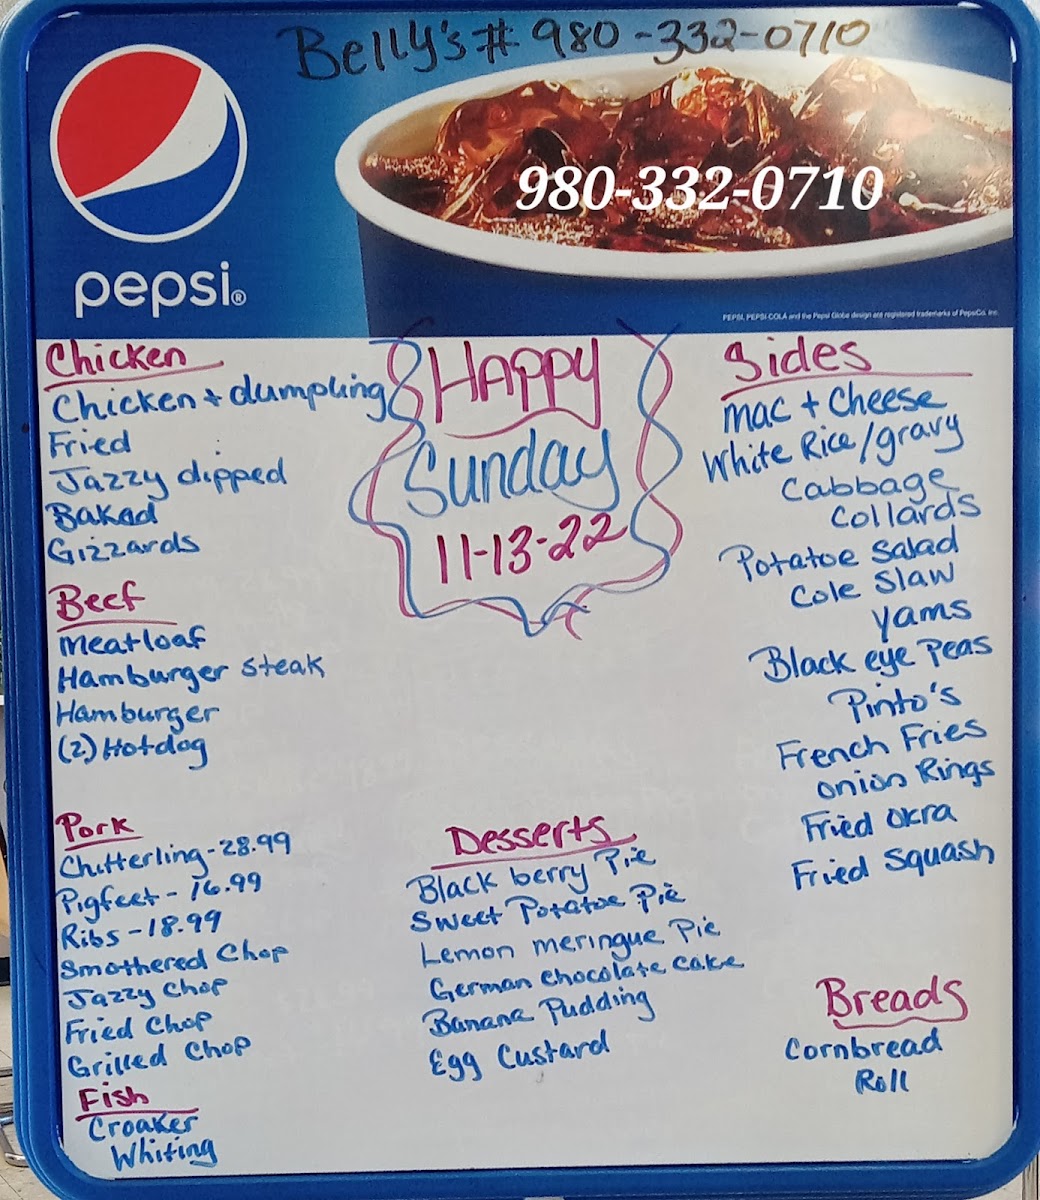 Belly's # 980-332-0710
980-332-0710
pepsi®
PEPSI, PEPSI-COLA and the Pepsi Globe design are registered trademarks of PepsiCo, Inc.
Happy
Sunday
11-13-22
Chicken
Chicken + dumpling
Fried
Jazzy dipped
Baked
Gizzards
Beef
Meatloaf
Hamburger steak
Hamburger
(2) Hotdog
Pork
Chitterling-28.99
Pigfeet-16.99
Ribs-18.99
Smothered Chop
Jazzy Chop
Fried Chop
Grilled Chop
Fish
Croaker
Whiting
Desserts
Black berry Pie
Sweet Potatoe Pie
Lemon meringue Pie
German chocolate cake
Banana Pudding
Egg Custard
Sides
Mac + Cheese
White Rice/gravy
Cabbage
Collards
Potatoe Salad
Cole Slaw
Yams
Black eye Peas
Pinto's
French Fries
Onion Rings
Fried Okra
Fried Squash
Breads
Cornbread
Roll